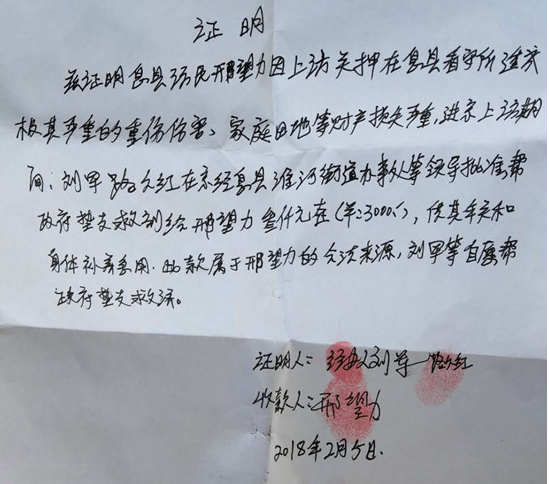 证明
兹证明息县访民邢望力因上访关押在息县看守所遭来
极其严重的重伤伤害、家庭田地等财产损失严重,进京上访期
间;刘军 路 红在京经息县淮河街道办事处等领导批准,帮
政府垫支救济给邢望力叁仟元在(羊:3000.),供其年关和
身体补养费用.此款属于邢望力的合法来源,刘军等自愿帮
政府垫支救济。
证明人:经办人刘军 路 红
收款人:邢望力
2018年2月5日.